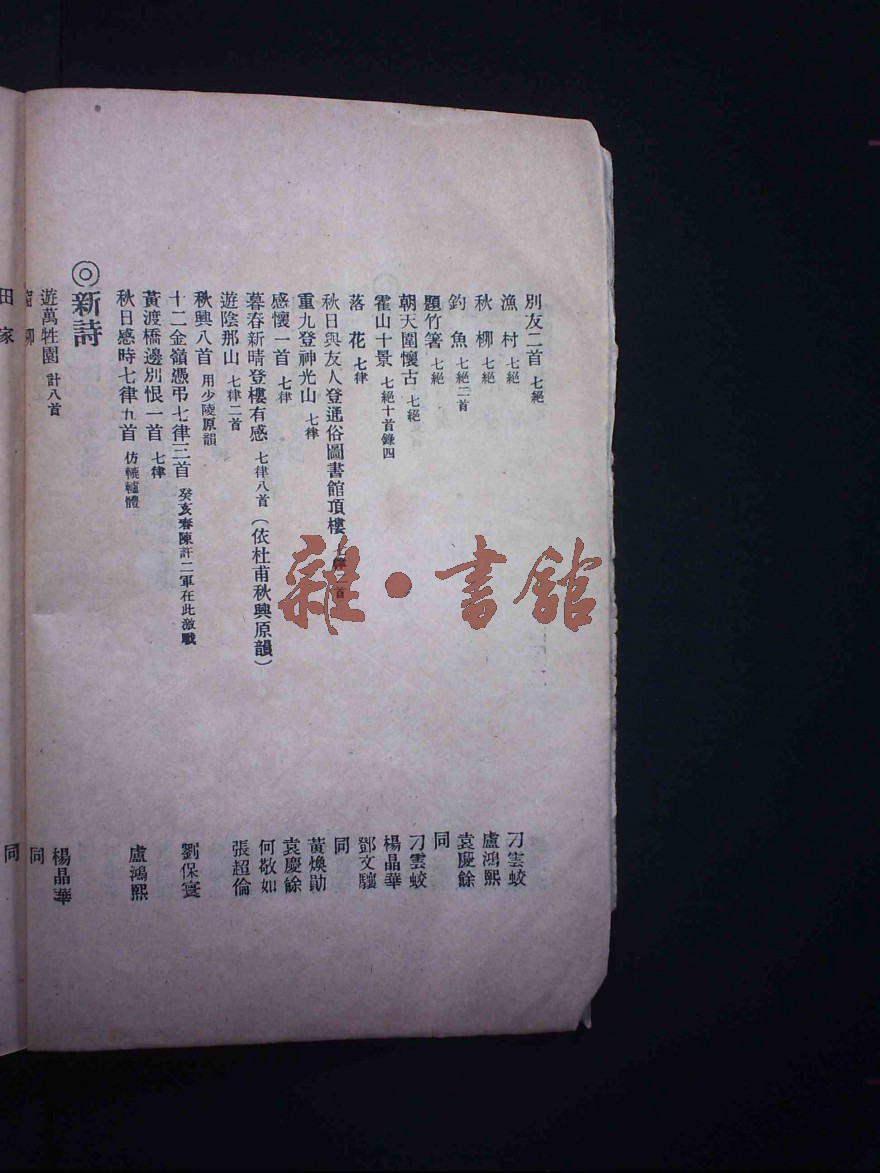 別友二首 七絕
漁村 七絕 刁雲蛟
秋柳 七絕 盧鴻熙
釣魚 七絕二首 袁慶餘
題竹箸 七絕 同
朝天圍懷古 七絕 刁雲蛟
霍山十景 七絕十首錄四 楊晶華
落花 七律 鄧文驤
秋日與友人登通俗圖書館頂樓 七律二首 同
重九登神光山 七律 黃煥勛
感懷一首 七律 袁慶餘
暮春新晴登樓有感 七律八首(依杜甫秋興原韻) 何敬如
遊陰那山 七律二首 張超倫
秋興八首 用少陵原韻
十二金嶺憑弔七律三首 癸亥春陳許二軍在此激戰 劉保寰
黃渡橋邊別恨一首 七律
秋日感時七律九首 仿轆轤體 盧鴻熙
◎新詩
遊萬牲園 計八首 楊晶華
柳 同
田家 同
雜·書館